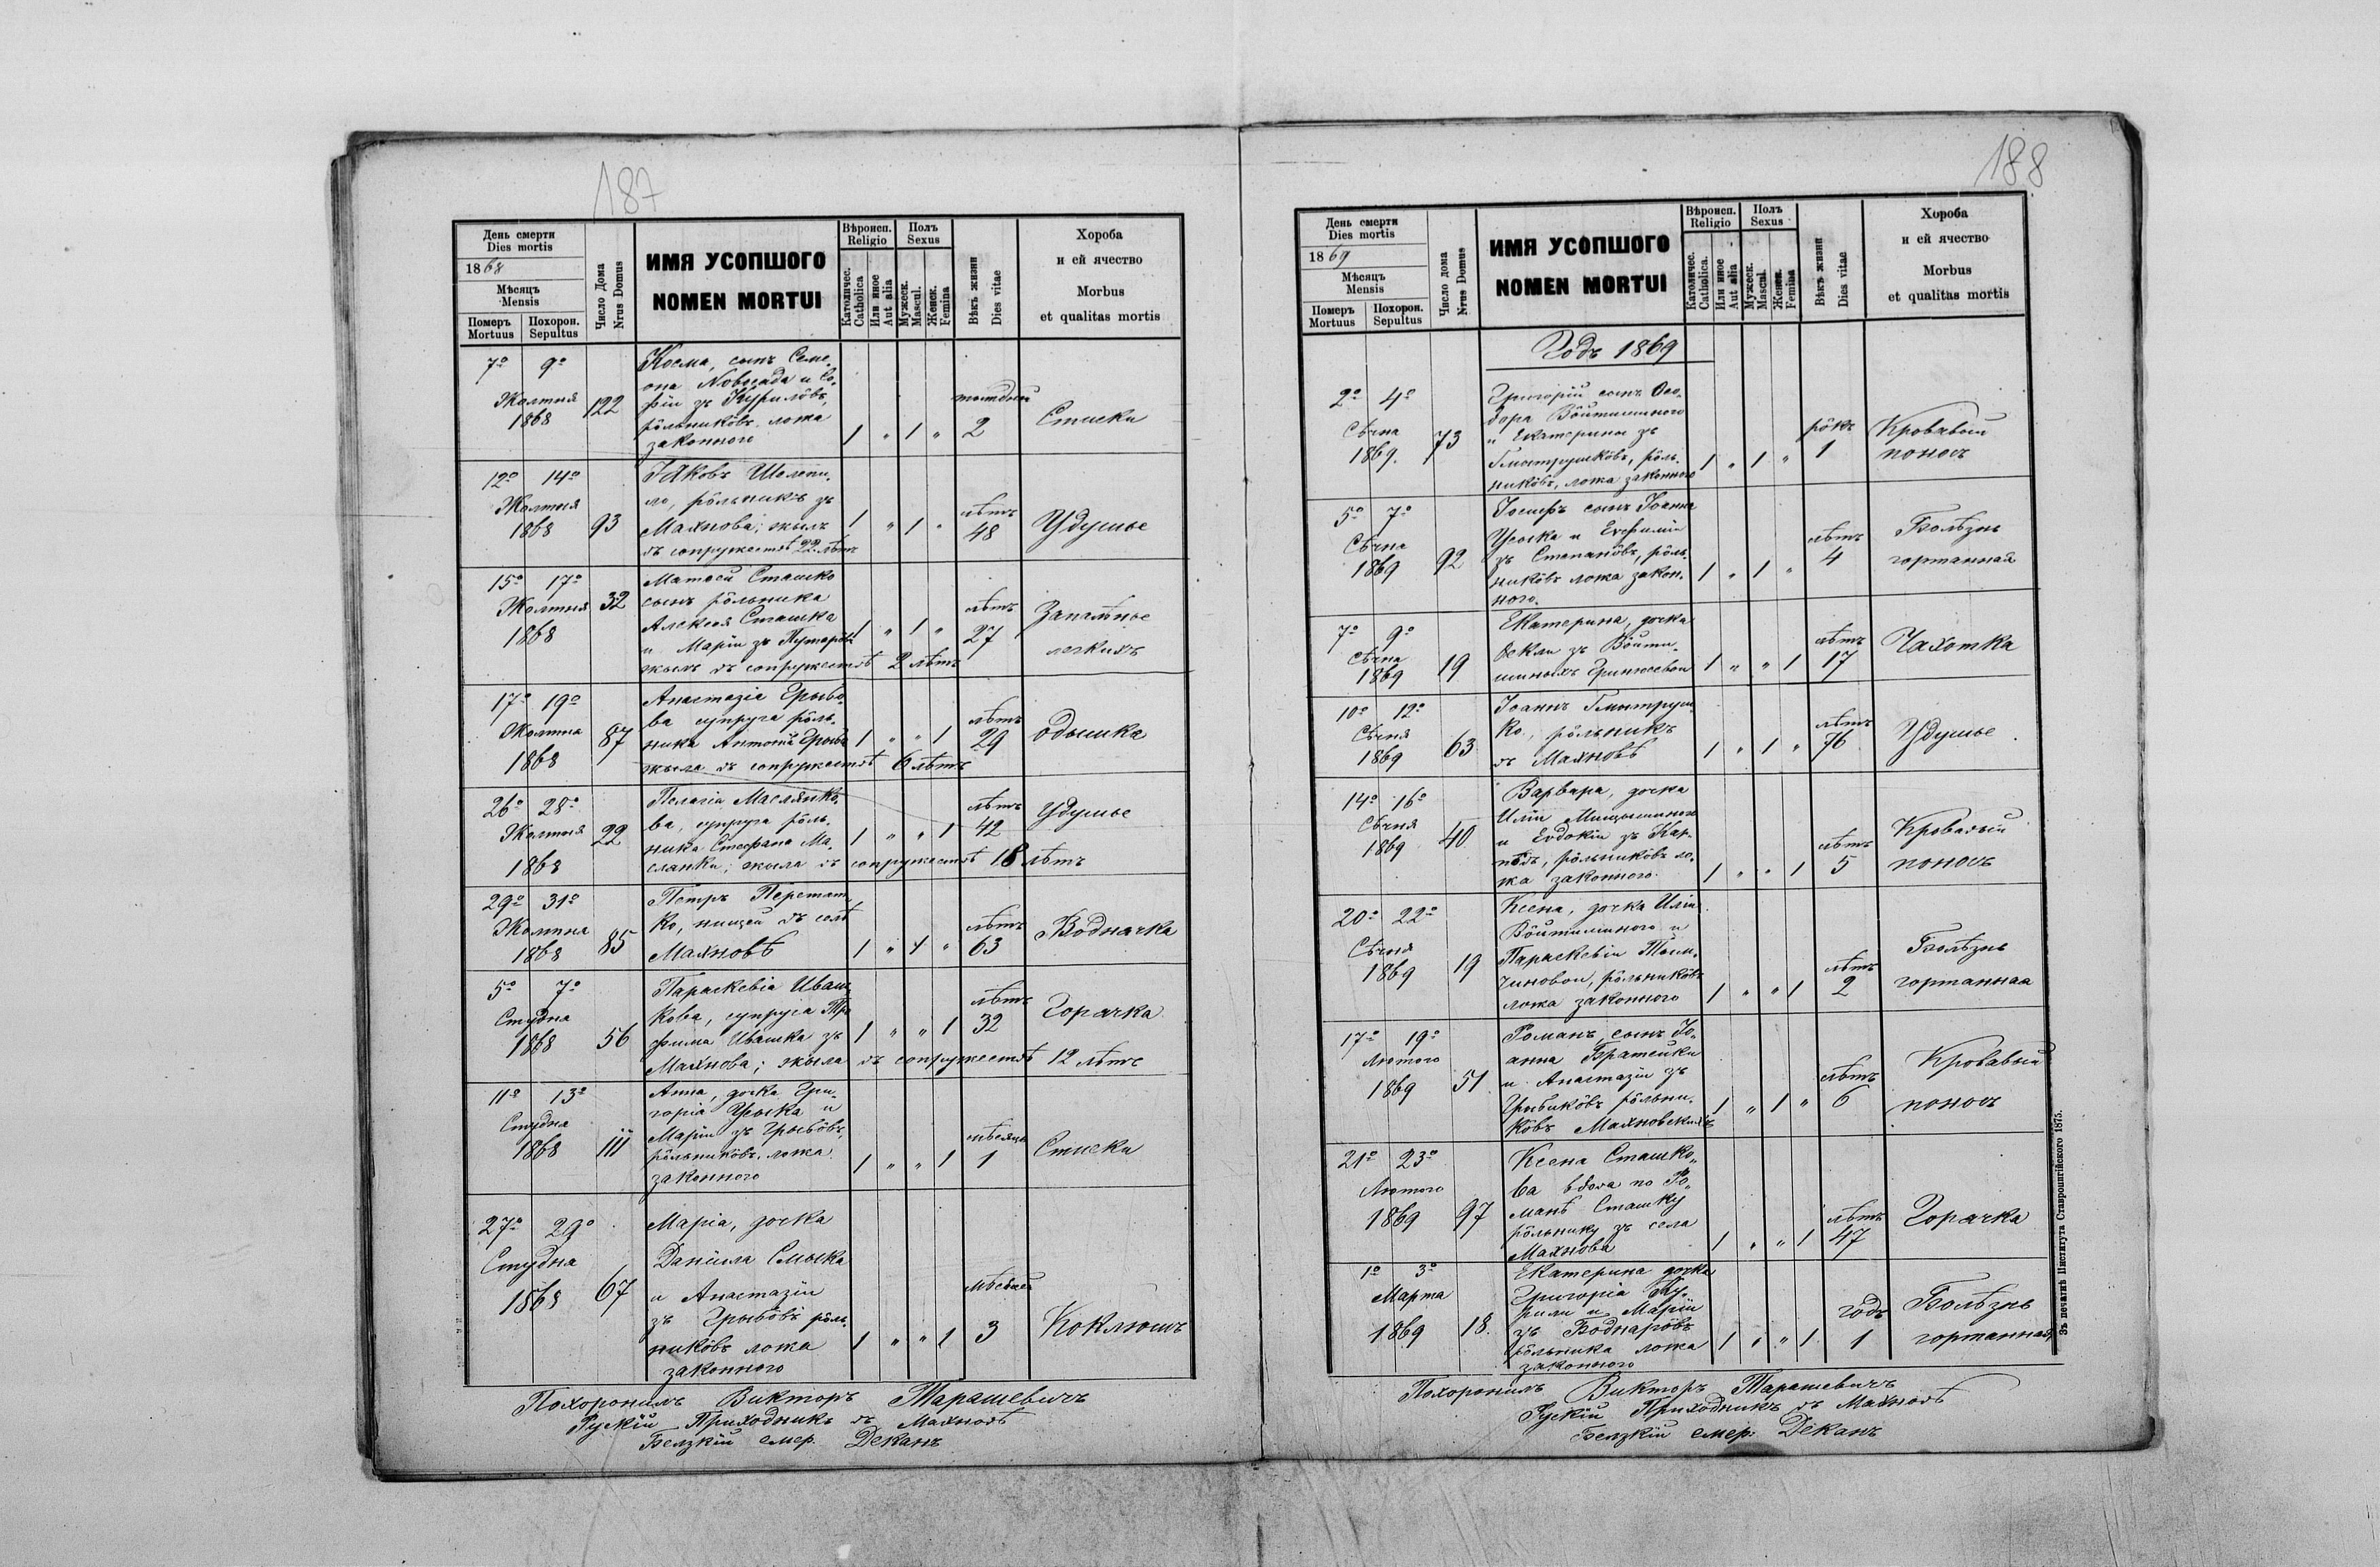 187
День смерти
Dies mortis
1868
Мѣсяцъ
Mensis
Померъ Похорон.
Mortuus Sepultus
Число Дома
Nrus Domus
ИМЯ УСОПШОГО
NOMEN MORTUI
Вѣроисп.
Religio
Католичес.
Catholica
Или иное
Aut alia
Полъ
Sexus
Мужеск.
Mascul.
Женск.
Femina
Вѣкъ жизни
Dies vitae
Хороба
и ей ячество
Morbus
et qualitas mortis
7º 9º
Жолтня
1868
122
Косма, сынъ Семе„
она Novосада и Со„
фіи зъ Курилôвъ,
рôльникôвъ ложа
законного
1 „ 1 „
2
Стиски
12º 14º
Жолтня
1868
93
Іаковъ Шолопи„
ло, рôльникъ зъ
Махнова; жылъ
въ сопружествѣ 22 лѣтъ
1 „ 1 „
лѣтъ
48
Удушье
15º 17º
Жолтня
1868
32
Матѳей Сташко
сынъ рôльника
Алексѣя Сташка
и Маріи зъ
жылъ въ сопружествѣ 2 лѣтъ
1 „ 1 „
лѣтъ
27
Запаленье
легкихъ
17º 19º
Жолтня
1868
87
Анастазіа Грыбо„
ва супруга рôль„
ника Антонія Грыба
жыла въ сопружествѣ 6 лѣтъ
1 „ „ 1
лѣтъ
29
Одышка
26º 28º
Жолтня
1868
22
Пелагіа Маслянко„
ва, супруга рôль„
ника Стефана Ма„
слянки; жыла въ сопружествѣ 18 лѣтъ
1 „ „ 1
лѣтъ
42
Удушье
29º 31º
Жолтня
1868
85
Петръ Перетят„
ко, нищій въ селѣ
Махновѣ
1 „ 1 „
лѣтъ
63
Водначка
5º 7º
Студня
1868
56
Параскевіа Иваш„
кова, супруга Тро„
фима Ивашка зъ
Махнова; жыла въ сопружествѣ 12 лѣтъ
1 „ „ 1
лѣтъ
32
Горячка
11º 13º
Студня
1868
111
Анна, дочка Гри„
горіа Уйска и
Маріи зъ Грыбôвъ,
рôльникôвъ ложа
законного
1 „ „ 1
мѣсяцъ
1
Стиски
27º 29º
Студня
1868
67
Маріа, дочка
Даніила Смыка
и Анастазіи
зъ Грыбôвъ рôль„
никôвъ ложа
законного
1 „ „ 1
мѣсяцей
3
Коклюшъ
Похоронилъ Викторъ Тарашевичъ
Рускій Приходникъ въ Махновѣ
Белзкій емер. Деканъ
188
День смерти
Dies mortis
1869
Мѣсяцъ
Mensis
Померъ Похорон.
Mortuus Sepultus
Число дома
Nrus Domus
ИМЯ УСОПШОГО
NOMEN MORTUI
Вѣроисп.
Religio
Католичес.
Catholica.
Или иное
Aut alia
Полъ
Sexus
Мужеск.
Mascul.
Женск.
Femina
Вѣкъ жизни
Dies vitae
Хороба
и ей ячество
Morbus
et qualitas mortis
Годъ 1869
2º 4º
Сѣчня
1869.
73
Григорій сынъ Ѳео„
дора Вôйтишиного
и Екатерины зъ
Гмытрушкôвъ, рôль„
никôвъ, ложа законного
1 „ 1 „
рôкъ
1
Кровавый
поносъ
5º 7º
Сѣчня
1869
92
Іосифъ сынъ Іоанна
Уйска и Евфиміи
зъ Степанôвъ, рôль„
никôвъ ложа закон„
ного.
1 „ 1 „
лѣтъ
4
Болѣзнь
гортанная
7º 9º
Сѣчня
1869
19
Екатерина, дочка
Ѳеклы зъ Вôйти„
шиныхъ Гринюсевои
1 „ „ 1
лѣтъ
17
Чахотка
10º 12º
Сѣчня
1869
63
Іоаннъ Гмытруш„
ко, рôльникъ
въ Махновѣ
1 „ 1 „
лѣтъ
76
Удушье
14º 16º
Сѣчня
1869
40
Варвара, дочка
Иліи Мищишиного
и Евдокіи зъ Кар„
пôвъ, рôльникôвъ ло„
жа законного
1 „ „ 1
лѣтъ
5
Кровавый
поносъ
20º 22º
Сѣчня
1869
19
Ксена, дочка Иліи
Вôйтишиного и
Параскевіи Тым„
чиновои, рôльникôвъ
ложа законного
1 „ „ 1
лѣтъ
2
Болѣзнь
гортанная
17º 19º
Лютого
1869
51
Романъ сынъ Іо„
анна Братейки
и Анастазіи зъ
Грибикôвъ рôльни„
кôвъ Махновскихъ
1 „ 1 „
лѣтъ
6
Кровавый
поносъ
21º 23º
Лютого
1869
97
Ксена Сташко„
ва вдова по Ро„
манѣ Сташку
рôльнику зъ села
Махнова
1 „ „ 1
лѣтъ
47
Горячка
1º 3º
Марта
1869
18.
Екатерина дочка
Григоріа Ку„
рилы и Маріи
зъ Боднарôвъ
рôльника ложа
законного
1 „ „ 1
годъ
1
Болѣзнь
гортанная
Похоронилъ Викторъ Тарашевичъ
Рускій Приходникъ въ Махновѣ
Белзкій емер. Деканъ
Зъ печатнѣ Института Ставропигійского 1875.